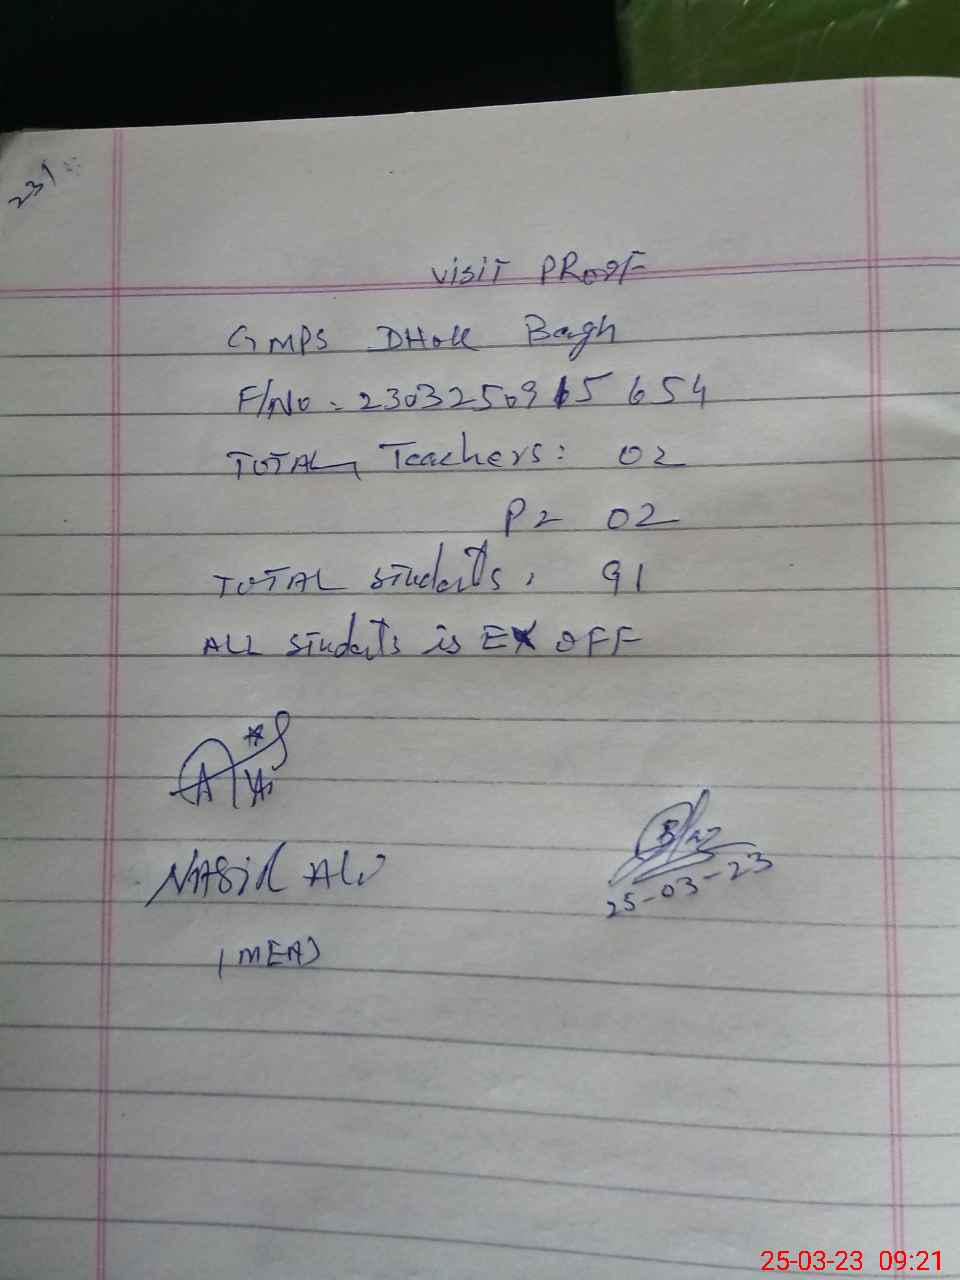 23/
Visit PRoof
GMPS DHoK Bagh
F/No. 2303250915654
TOTAL Teachers: 02
P = 02
TOTAL students: 91
ALL students is EX OFF
NASiR ALi
(MEA)
25-03-23
25-03-23 09:21